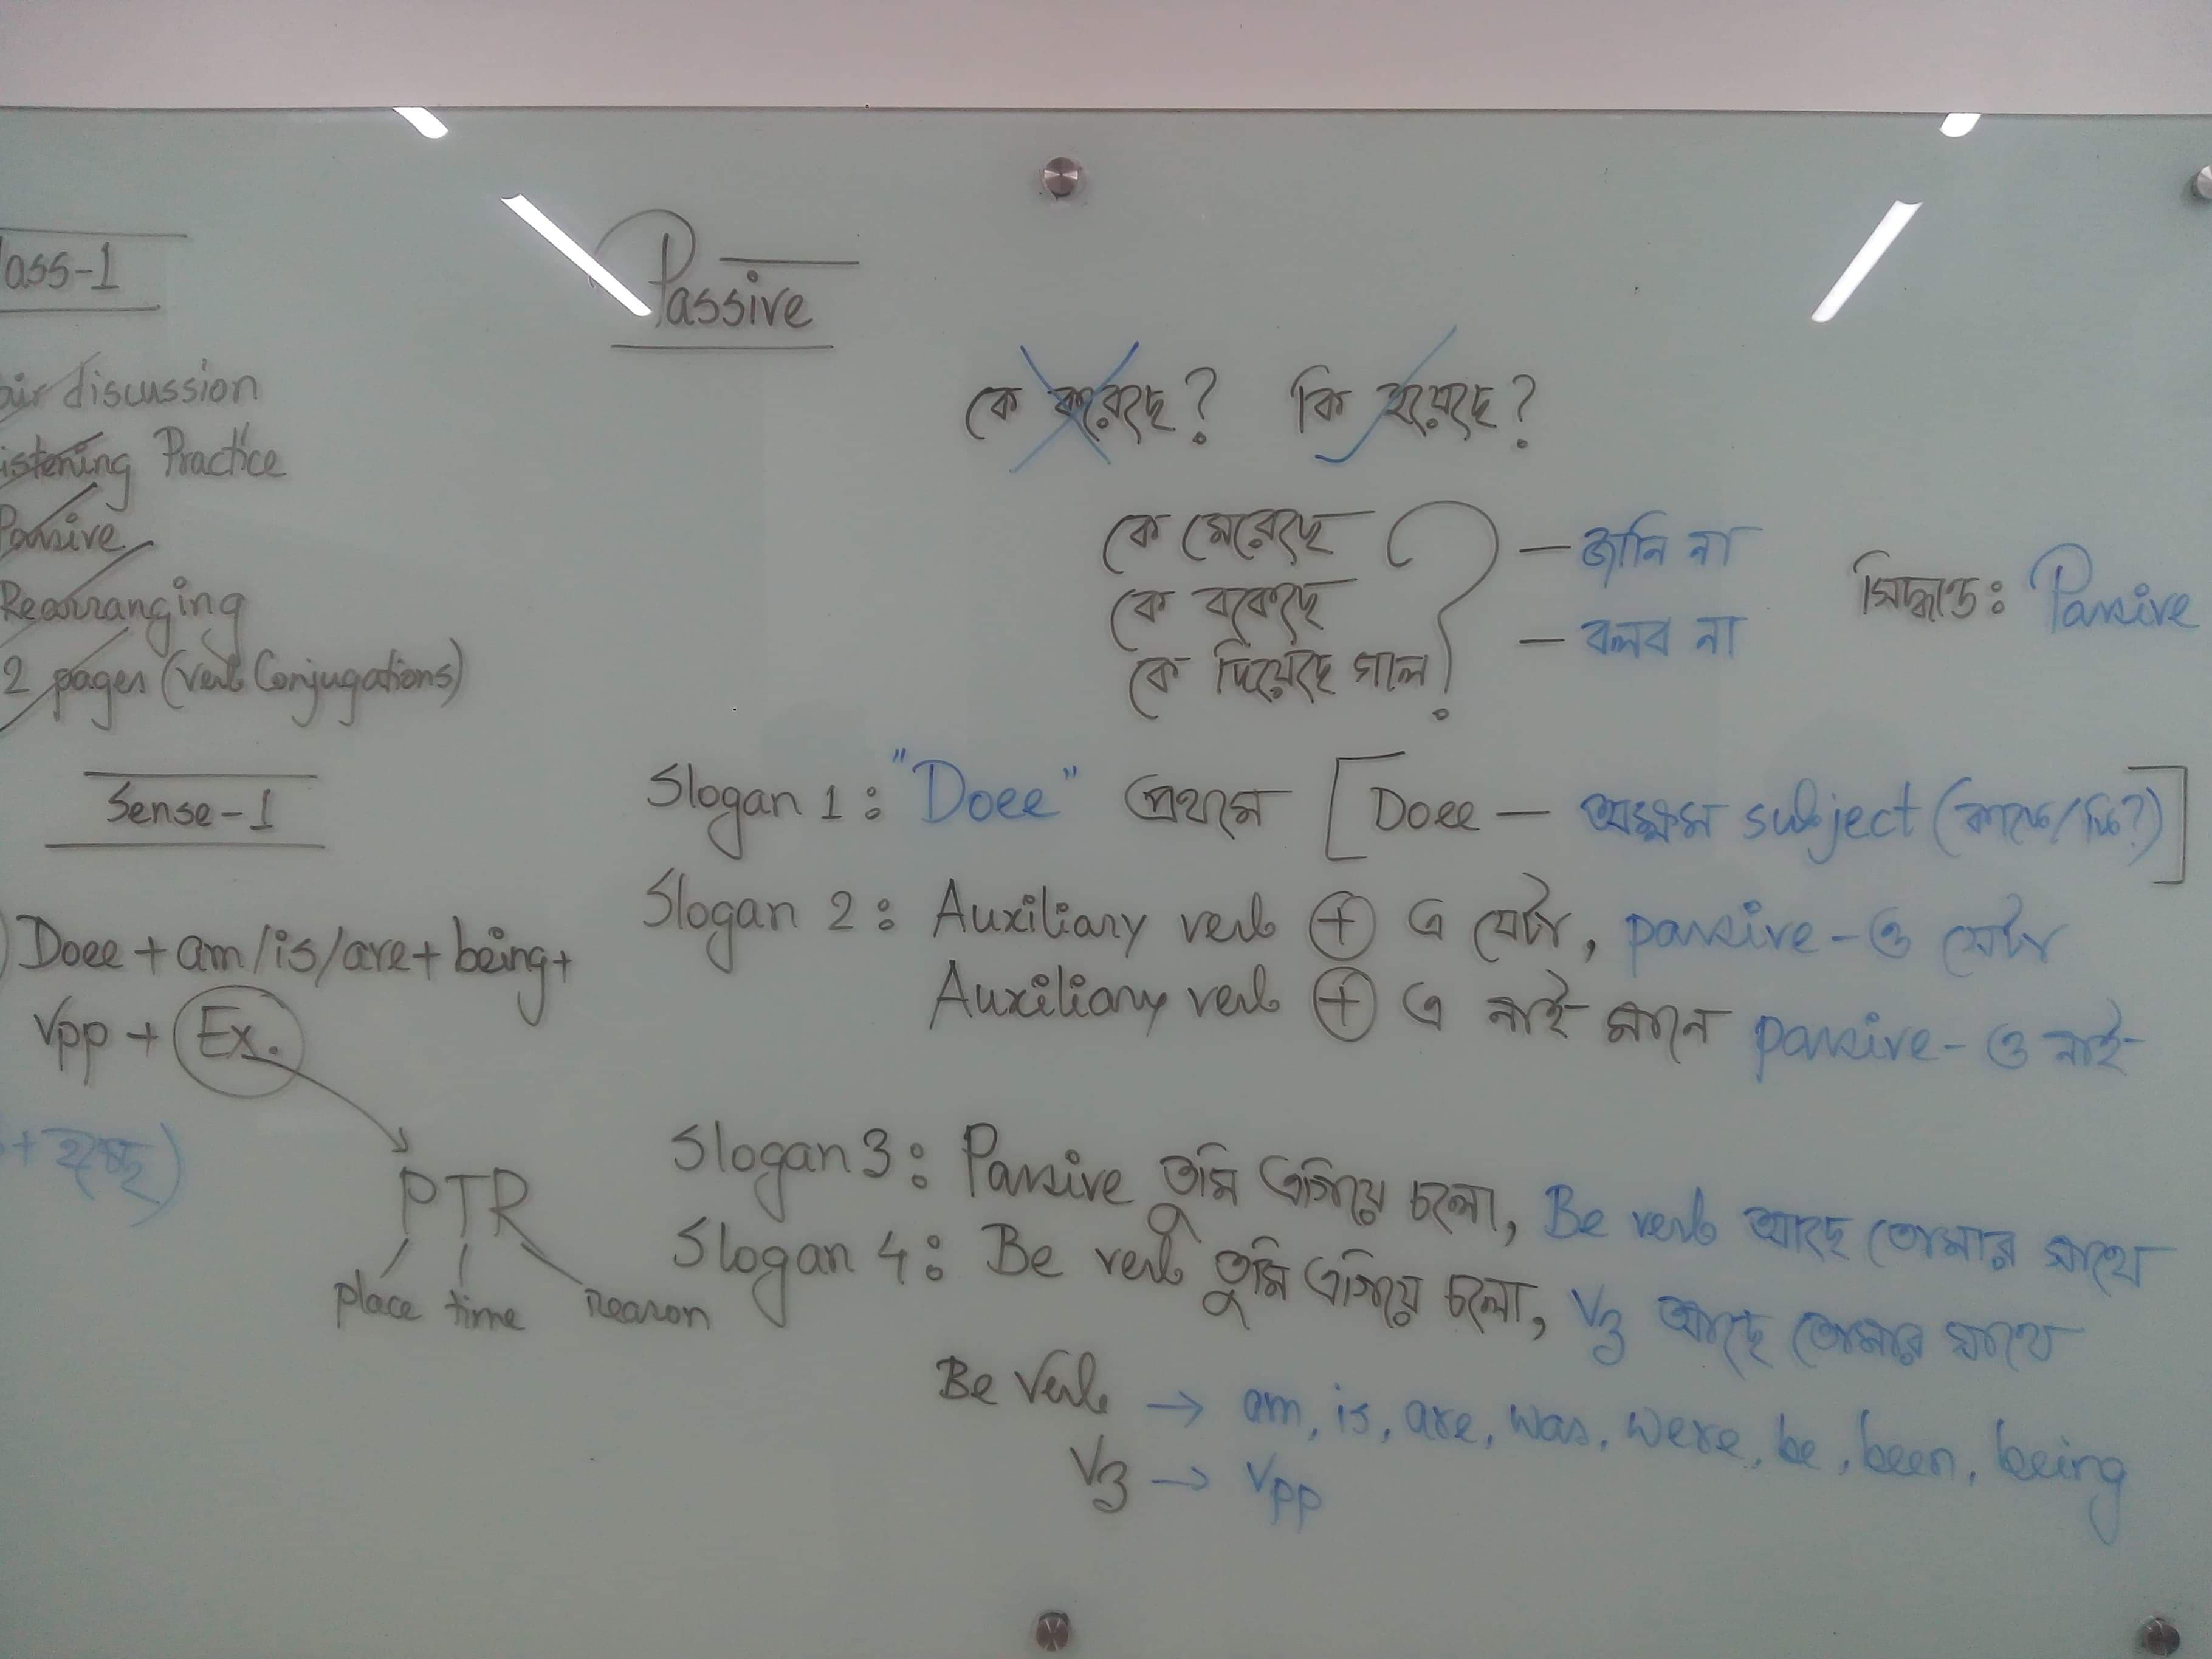 ass-1
air discussion
istening Practice
Passive
Rearranging
2 pages (Verb Conjugations)
Sense-1
Doee + am/is/are + being +
Vpp + Ex.
+ হচ্ছে)
PTR
place time reason
Passive
কে করেছে? কি হয়েছে?
কে মেরেছে
কে বকেছে
কে দিয়েছে গাল?
— জানি না
— বলব না
সিদ্ধান্ত: Passive
Slogan 1: "Doee" প্রথমে [Doee — অক্ষম subject (কাকে/কি?)]
Slogan 2: Auxiliary verb + এ যেটা, passive-ও সেটা
Auxiliary verb + এ নাই মানে passive-ও নাই
Slogan 3: Passive তুমি এগিয়ে চলো, Be verb আছে তোমার সাথে
Slogan 4: Be verb তুমি এগিয়ে চলো, V3 আছে তোমার সাথে
Be Verb → am, is, are, was, were, be, been, being
V3 → Vpp